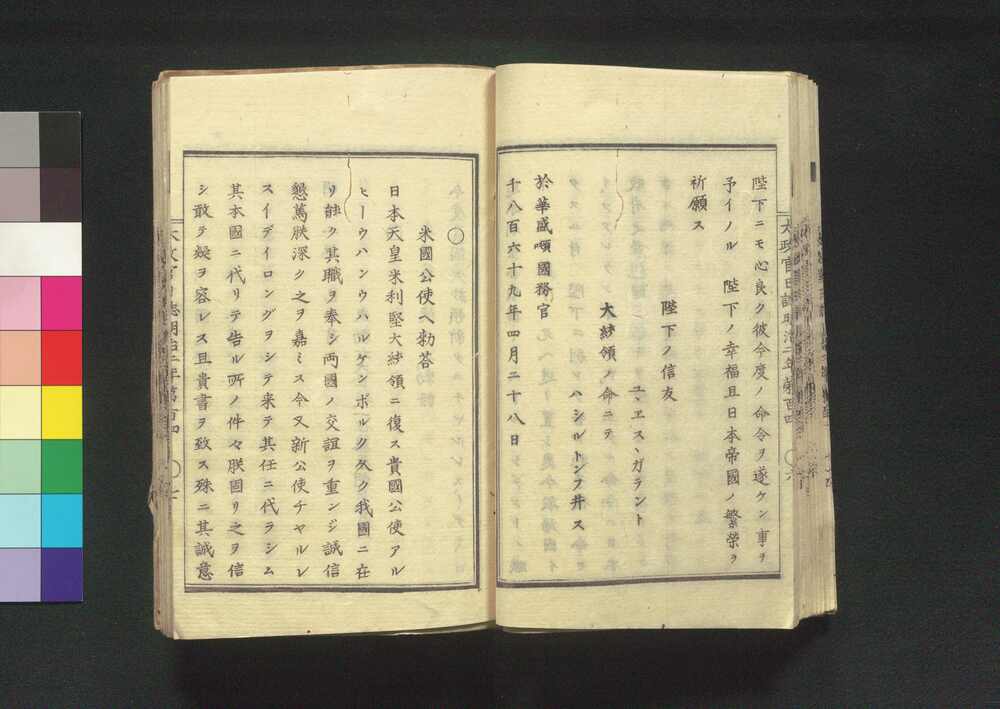 陛下ニモ心良ク彼今度ノ命令ヲ遂ケン事ヲ
予イノル　陛下ノ幸福且日本帝國ノ繁榮ヲ
祈願ス
陛下ノ信友
ユ、エス、ガラント
大統領ノ命ニテ
ハシルトンフ井ス
於華盛頓國務官
千八百六十九年四月二十八日
太政官日誌明治二年第百四
〇六
〇米國公使ヘ勅答
日本天皇米利堅大統領ニ復ス貴國公使アル
ヒーウハンウハルケンボルク久ク我國ニ在
リ能ク其職ヲ奉シ両國ノ交誼ヲ重ンジ誠信
懇篤朕深ク之ヲ嘉ミス今又新公使チヤルレ
スイデイロングヲシテ来テ其任ニ代ラシム
其本國ニ代リテ告ル所ノ件々朕固リ之ヲ信
シ敢テ疑ヲ容レス且貴書ヲ致ス殊ニ其誠意